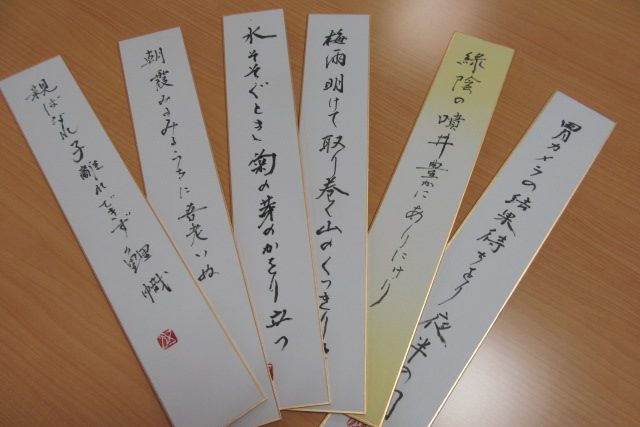 胃カメラの結果待ちをり夜半の月
緑陰の噴井豊かにありにけり
梅雨明けて取り巻く山のくつきりと
水そそぐとき菊の芽のかをり立つ
朝霞みるみるうちに吾老いぬ
親ばなれ子離れできず鯉幟